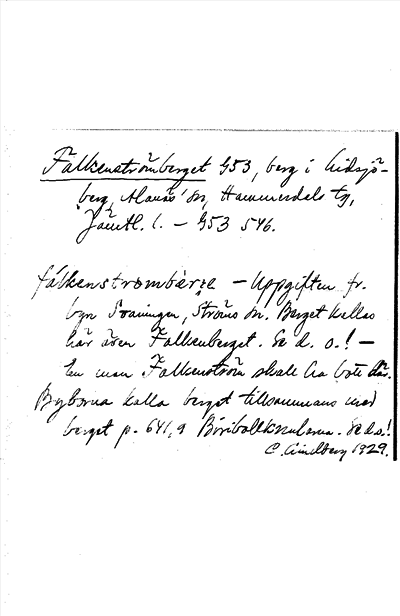 Falkenströmberget G53, berg i Lidsjö-
berg, Alanäs sn, Hammerdals tg,
Jämtl. l. — G53 546.
fálkenstrømbàrje — Uppgiften fr.
byn Svaningen, Ströms sn. Berget kallas
här även Falkenberget. Se d. o.! —
En man Falkenström skall ha bott där.
Byborna kalla berget tillsammans med
berget p. 641,9 . Se d.o.!
C. Lindberg 1929.